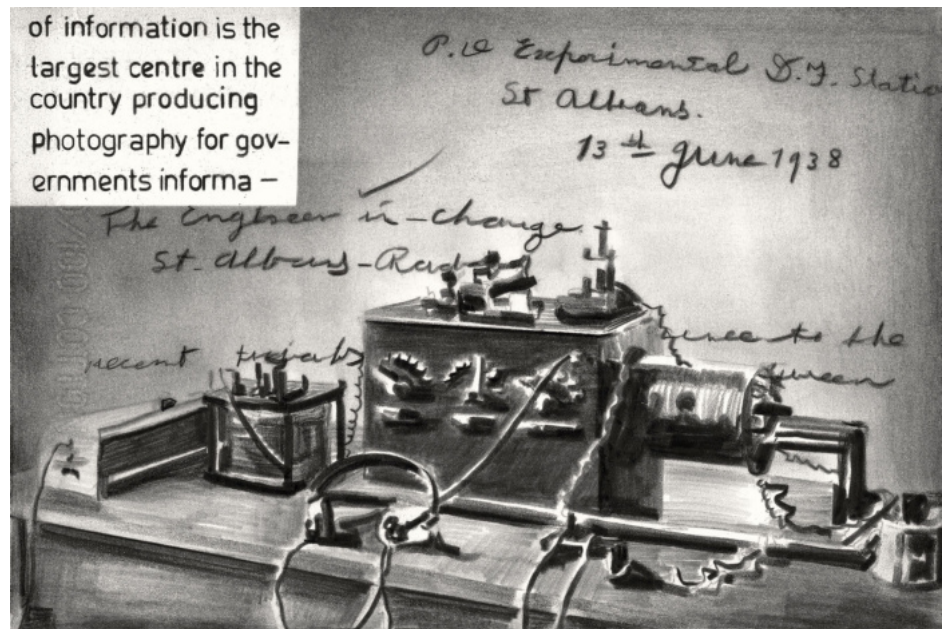 of information is the
largest centre in the
country producing
photography for gov-
ernments informa-
P.O Experimental D.F. Statio
St Albans.
13th June 1938
The Engineer in-change.
St. Albans-Rad
recent
to the